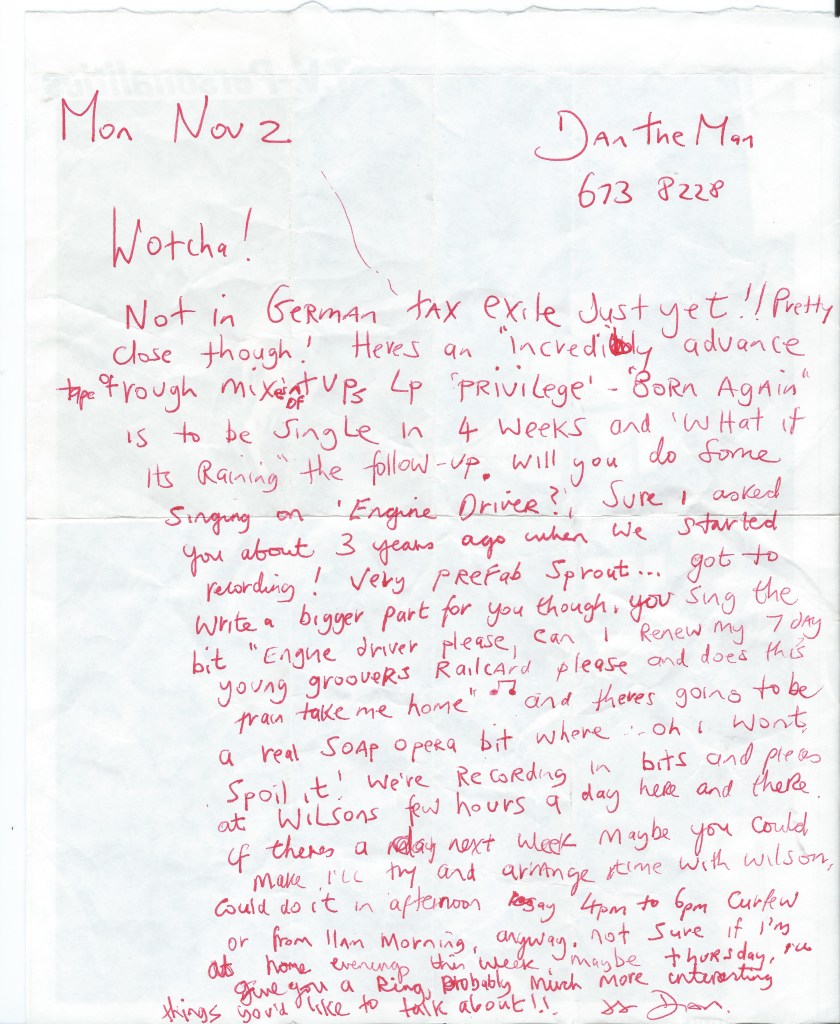 T.V. Personalities
Mon Nov 2
Dan the Man
673 8228
Wotcha!
Not in German tax exile just yet!! Pretty
close though! Heres an "incredibly advance
tape of rough mixes of TVPs LP 'Privilege' - "Born Again"
is to be single in 4 weeks and 'What if
its Raining" the follow-up. Will you do some
singing on 'Engine Driver?', Sure I asked
you about 3 years ago when we started
recording! Very Prefab Sprout... got to
write a bigger part for you though, you sing the
bit "Engine driver please, can I Renew my 7 day
young groovers Railcard please and does this
train take me home" ♫ and theres going to be
a real Soap opera bit where .. oh I wont
spoil it! We're Recording in bits and pieces
at Wilsons few hours a day here and there.
If theres a day next week maybe you could
make I'll try and arrange time with Wilson,
could do it in afternoon say 4pm to 6pm curfew
or from 11am Morning, anyway. not sure if I'm
at home evenings this week, maybe thursday, I'll
give you a Ring, Probably much more interesting
things you'd like to talk about!! Dan.